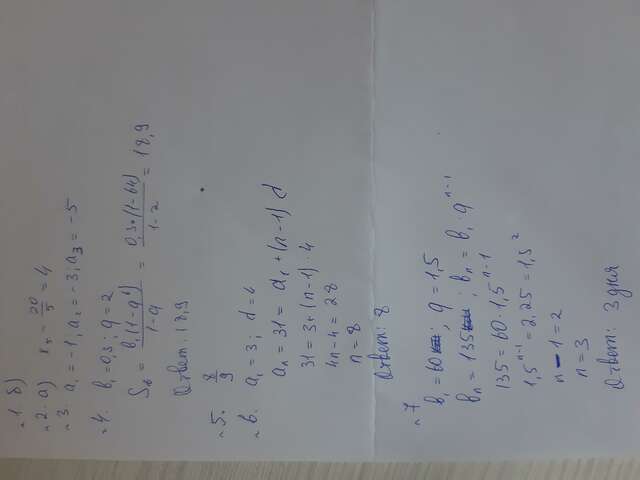 №1. б)
№2. а) x₄ = 20/5 = 4
№3. a₁ = -1; a₂ = -3; a₃ = -5
№4. b₁ = 0,3; q = 2
S₆ = b₁(1-q⁶)/1-q = 0,3·(1-64)/1-2 = 18,9
Ответ: 18,9
№5. 8/9
№6. a₁ = 3; d = 4
aₙ = 31 = a₁ + (n-1) d
31 = 3 + (n-1) · 4
4n - 4 = 28
n = 8
Ответ: 8
№7
b₁ = 60; q = 1,5
bₙ = 135; bₙ = b₁ · qⁿ⁻¹
135 = 60 · 1,5ⁿ⁻¹
1,5ⁿ⁻¹ = 2,25 = 1,5²
n - 1 = 2
n = 3
Ответ: 3 дня